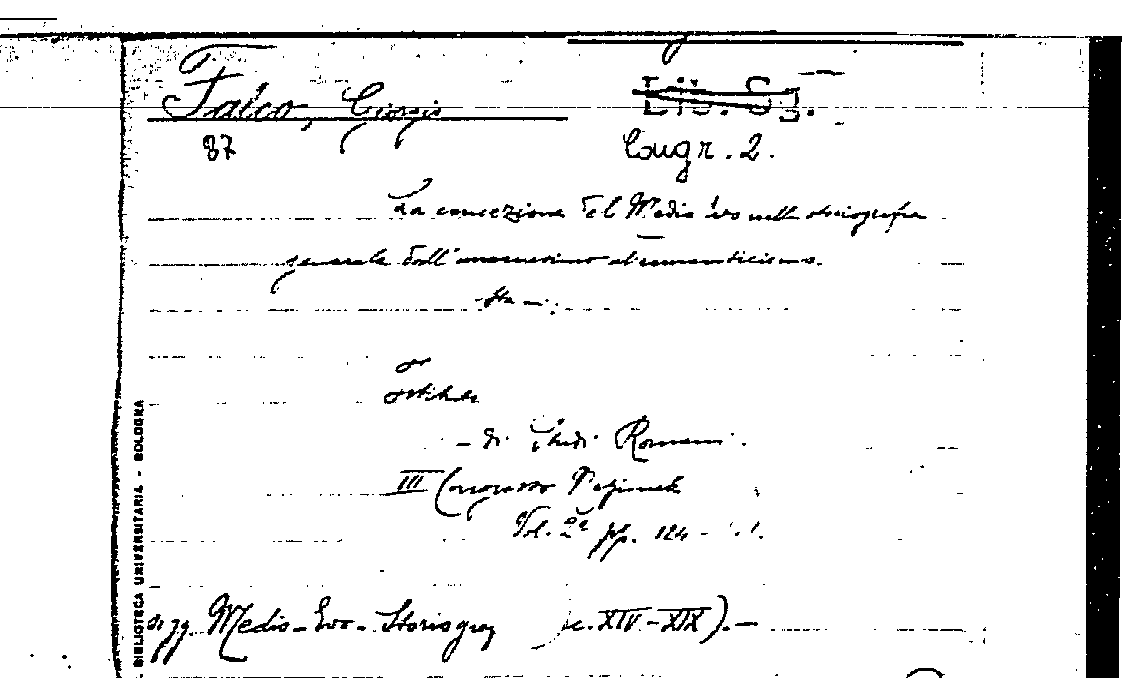 Falco, Giorgio
Lib. S3.
87
Congr. 2.
La concezione del Medio Evo nella storiografia
generale dall'umanesimo al romanticismo.
Istituto
- di Studi Romani.
III Congresso Nazionale
Vol. 2º pp. 124 -
Medio-Evo - Storiogr (sec. XIV-XIX). -
BIBLIOTECA UNIVERSITARIA - BOLOGNA